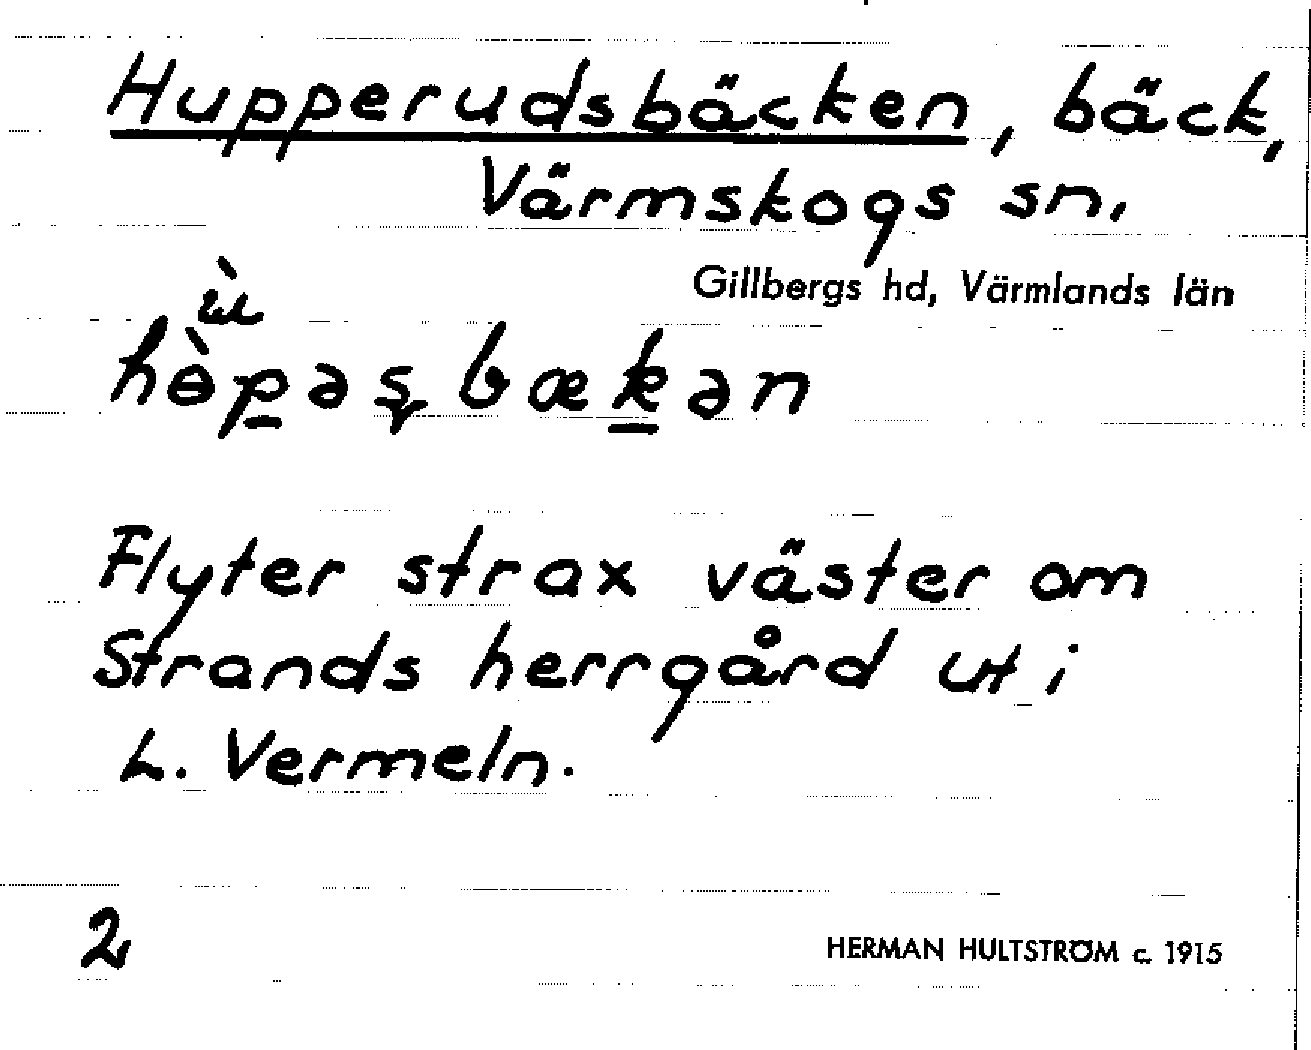 Hupperudsbäcken, bäck,
Värmskogs sn.
Gillbergs hd, Värmlands län
hɵ̀p̲əʂbæk̲ən
Flyter strax väster om
Strands herrgård ut i
L. Vermeln.
2
HERMAN HULTSTRÖM c. 1915